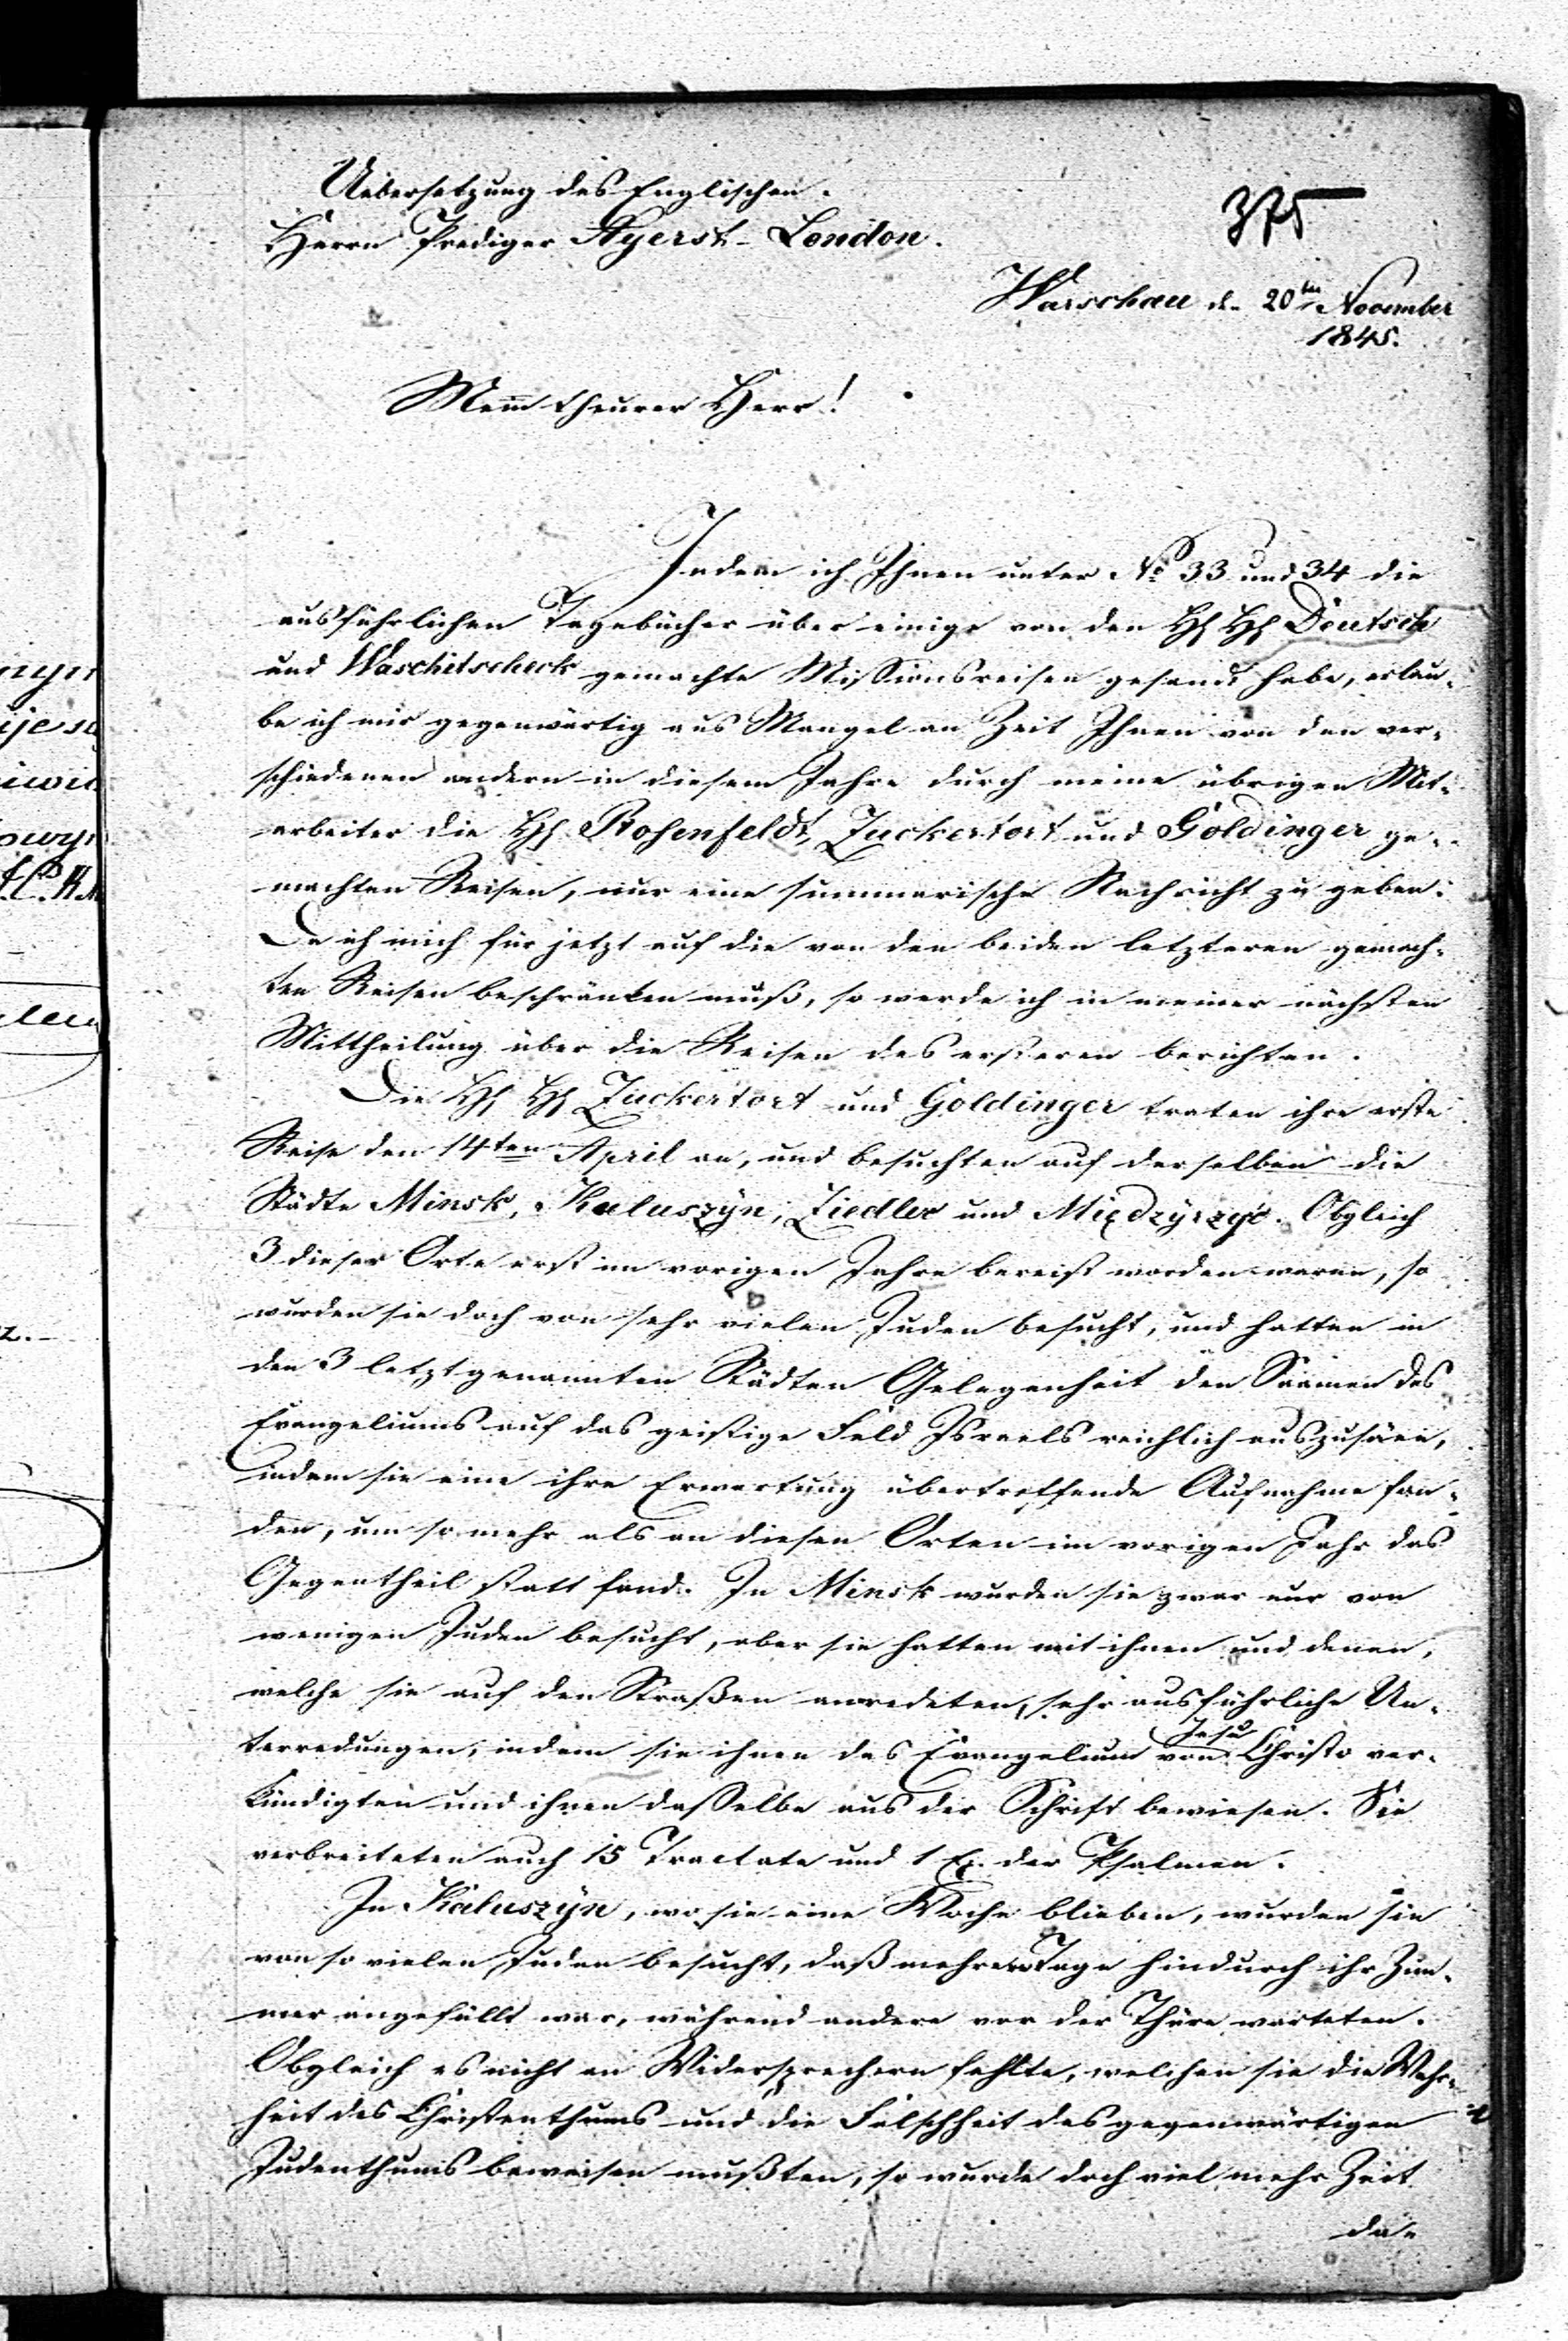 Uebersetzung des Englischen.
Herrn Prediger Ayerst-London.
375
Warschau d. 20ten November
1845.
Mein theurer Herr!
Indem ich Ihnen unter No 33 und 34 die
ausführlichen Tagebücher über einige von den HH HH Deutsch
und Waschitscheck gemachte Missionsreisen gesandt habe, erlau-
be ich mir gegenwärtig aus Mangel an Zeit Ihnen von den ver-
schiedenen andern in diesem Jahre durch meine übrigen Mit-
arbeiter die HH Rosenfeldt, Zuckertort und Goldinger ge-
machten Reisen, nur eine summarische Nachricht zu geben.
Da ich mich für jetzt auf die von den beiden letzteren gemach-
ten Reisen beschränken muß, so werde ich in meiner nächsten
Mittheilung über die Reisen des ersteren berichten.
Die HH HH Zuckertort und Goldinger traten ihre erste
Reise den 14ten April an, und besuchten auf derselben die
Städte Minsk, Kaluszyn, Ziedlec und Międzyrzyc. Obgleich
3 dieser Orte erst im vorigen Jahre bereist worden waren, so
wurden sie doch von sehr vielen Juden besucht, und hatten in
den 3 letztgenannten Städten Gelegenheit den Saamen des
Evangeliums auf das geistige Feld Israels reichlich auszusäen,
indem sie eine ihre Erwartung übertreffende Aufnahme fan-
den, um so mehr als an diesen Orten im vorigen Jahr das
Gegentheil statt fand. In Minsk wurden sie zwar nur von
wenigen Juden besucht, aber sie hatten mit ihnen und denen,
welche sie auf den Straßen anredeten, sehr ausführliche Un-
terredungen, indem sie ihnen das Evangelium von Jesu Christo ver-
kündigten und ihnen dasselbe aus der Schrift bewiesen. Sie
verbreiteten auch 15 Tractate und 1 Ex. der Psalmen.
In Kaluszyn, wo sie eine Woche blieben, wurden sie
von so vielen Juden besucht, daß mehrere Tage hindurch ihr Zim-
mer angefüllt war, während andere vor der Thüre warteten.
Obgleich es nicht an Widersprechern fehlte, welchen sie die Wahr-
heit des Christenthums und die Falschheit des gegenwärtigen
Judenthums beweisen mußten, so wurde doch viel mehr Zeit
da-